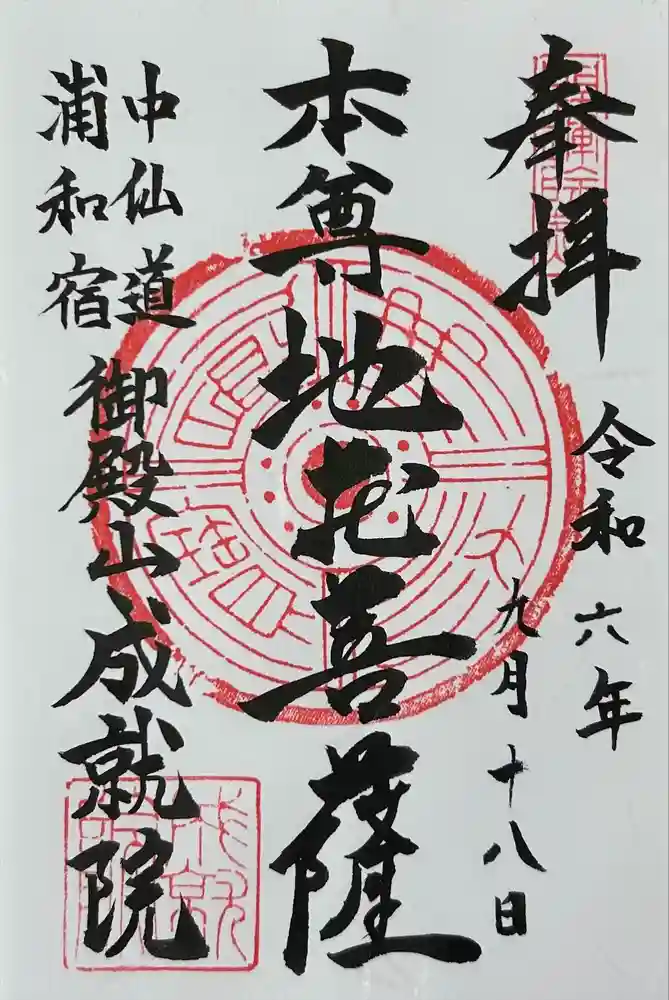 奉拝
令和六年
九月十八日
本尊地蔵菩薩
中仙道
浦和宿
御殿山成就院
成就院